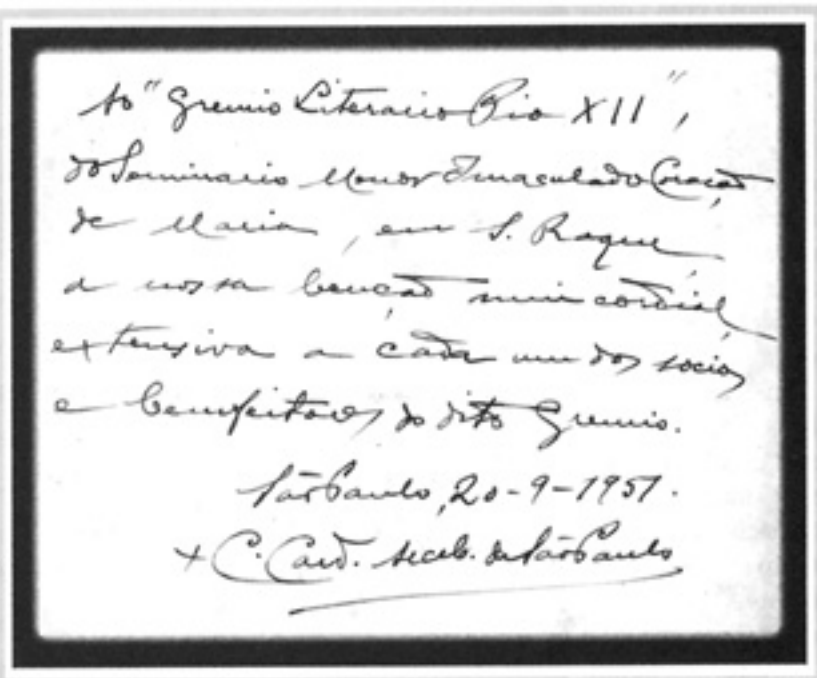 Ao "Gremio Literario Pio XII",
do Seminario Menor Imaculado Coração
de Maria, em S. Roque,
a nossa benção mui cordial,
extensiva a cada um dos socios
e bemfeitores do dito Gremio.
São Paulo, 20-9-1951.
+ C. Card. Arceb. de São Paulo